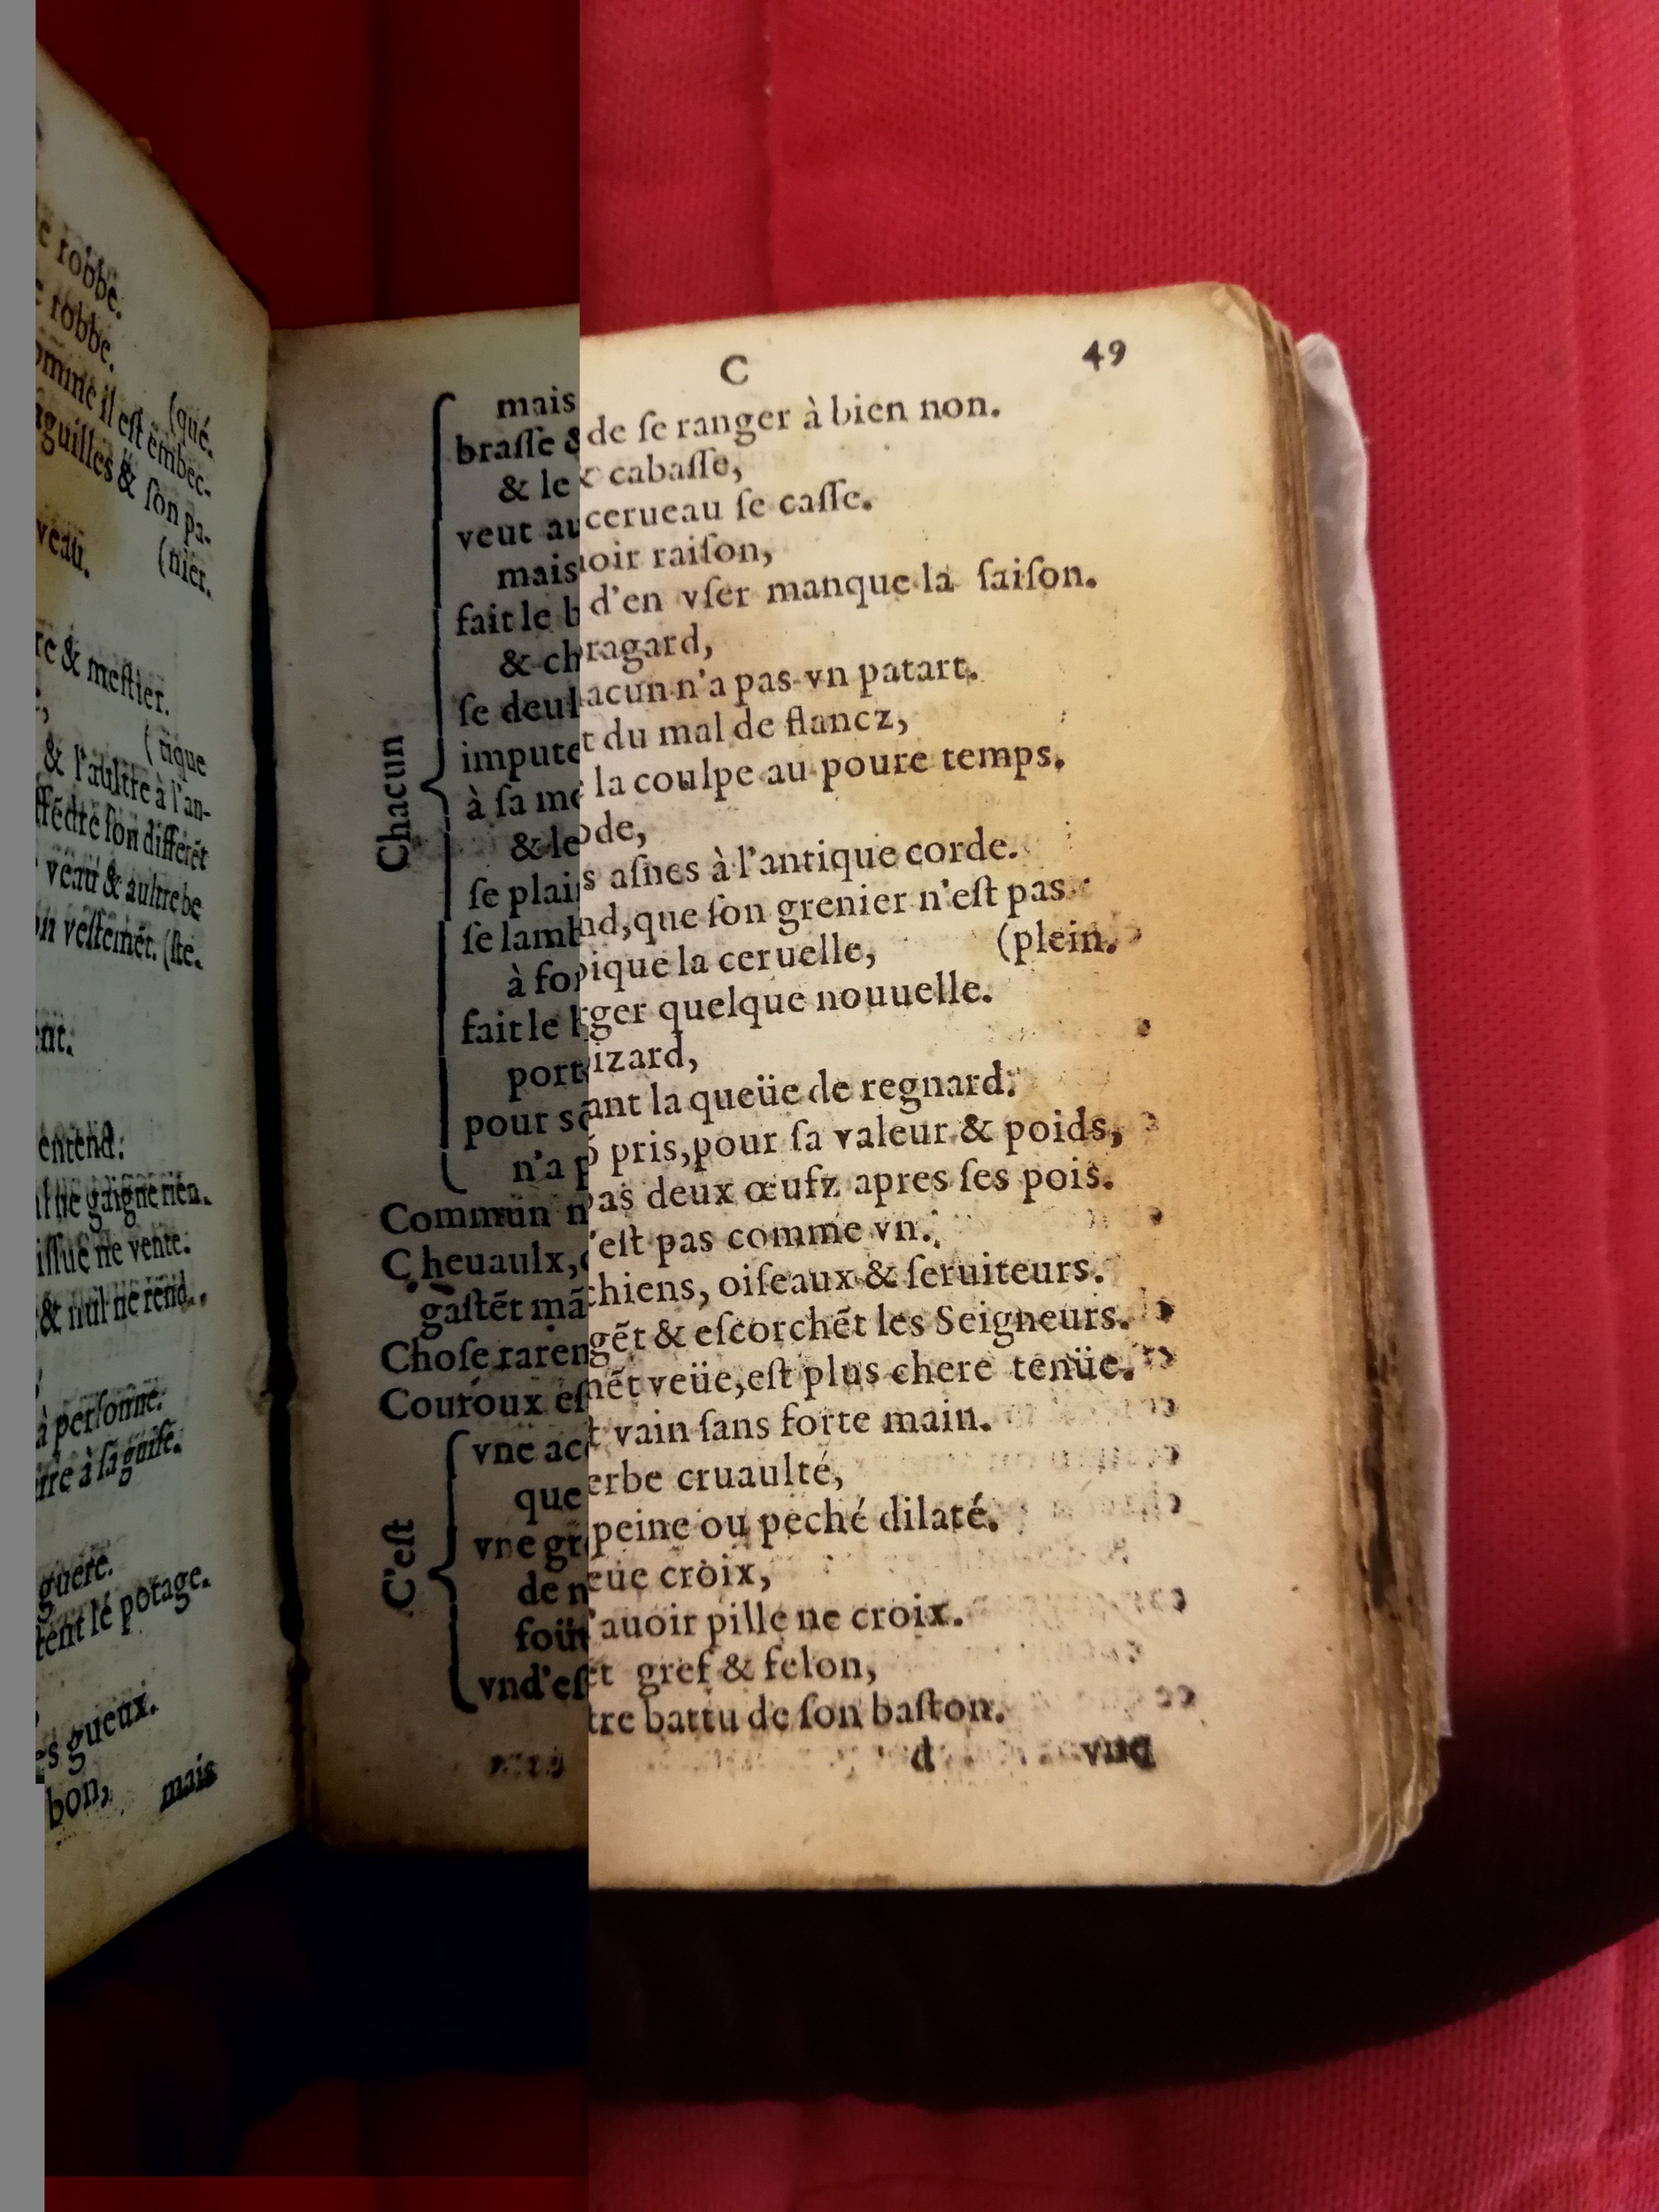 robbe.
robbe.
(qué.
il eſt embec-
& ſon pa-
veau. (nier.
& meſtier.
(tique
& l'aultre à l'an-
ſon differẽt
veau & aultre be
veſtemẽt. (ſte.
entend:
ne gaigne rien.
iſſuë ne vente.
& nul ne rend.
à perſonne.
à ſa guiſe.
guere.
le potage.
gueux.
bon, mais
C 49
Chacun
mais de ſe ranger à bien non.
braſſe & cabaſſe,
& le cerueau ſe caſſe.
veut auoir raiſon,
mais d'en vſer manque la ſaiſon.
fait le bragard,
& chacun n'a pas vn patart.
ſe deult du mal de flancz,
impute la coulpe au poure temps.
à ſa mode,
& les aſnes à l'antique corde.
ſe plaind, que ſon grenier n'eſt pas
ſe lambique la ceruelle, (plein.
à forger quelque nouuelle.
fait le bizard,
portant la queüe de regnard.
pour sõ pris, pour ſa valeur & poids,
n'a pas deux œufz apres ſes pois.
Commun n'eſt pas comme vn.
Cheuaulx, chiens, oiſeaux & ſeruiteurs.
gaſtẽt mãgẽt & eſcorchẽt les Seigneurs.
Choſe raremẽt veüe, eſt plus chere tenüe.
Couroux eſt vain ſans forte main.
C'eſt
vne acerbe cruaulté,
que peine ou peché dilaté.
vne greüe croix,
de n'auoir pille ne croix.
foüet gref & felon,
vnd'eſtre battu de ſon baſton.